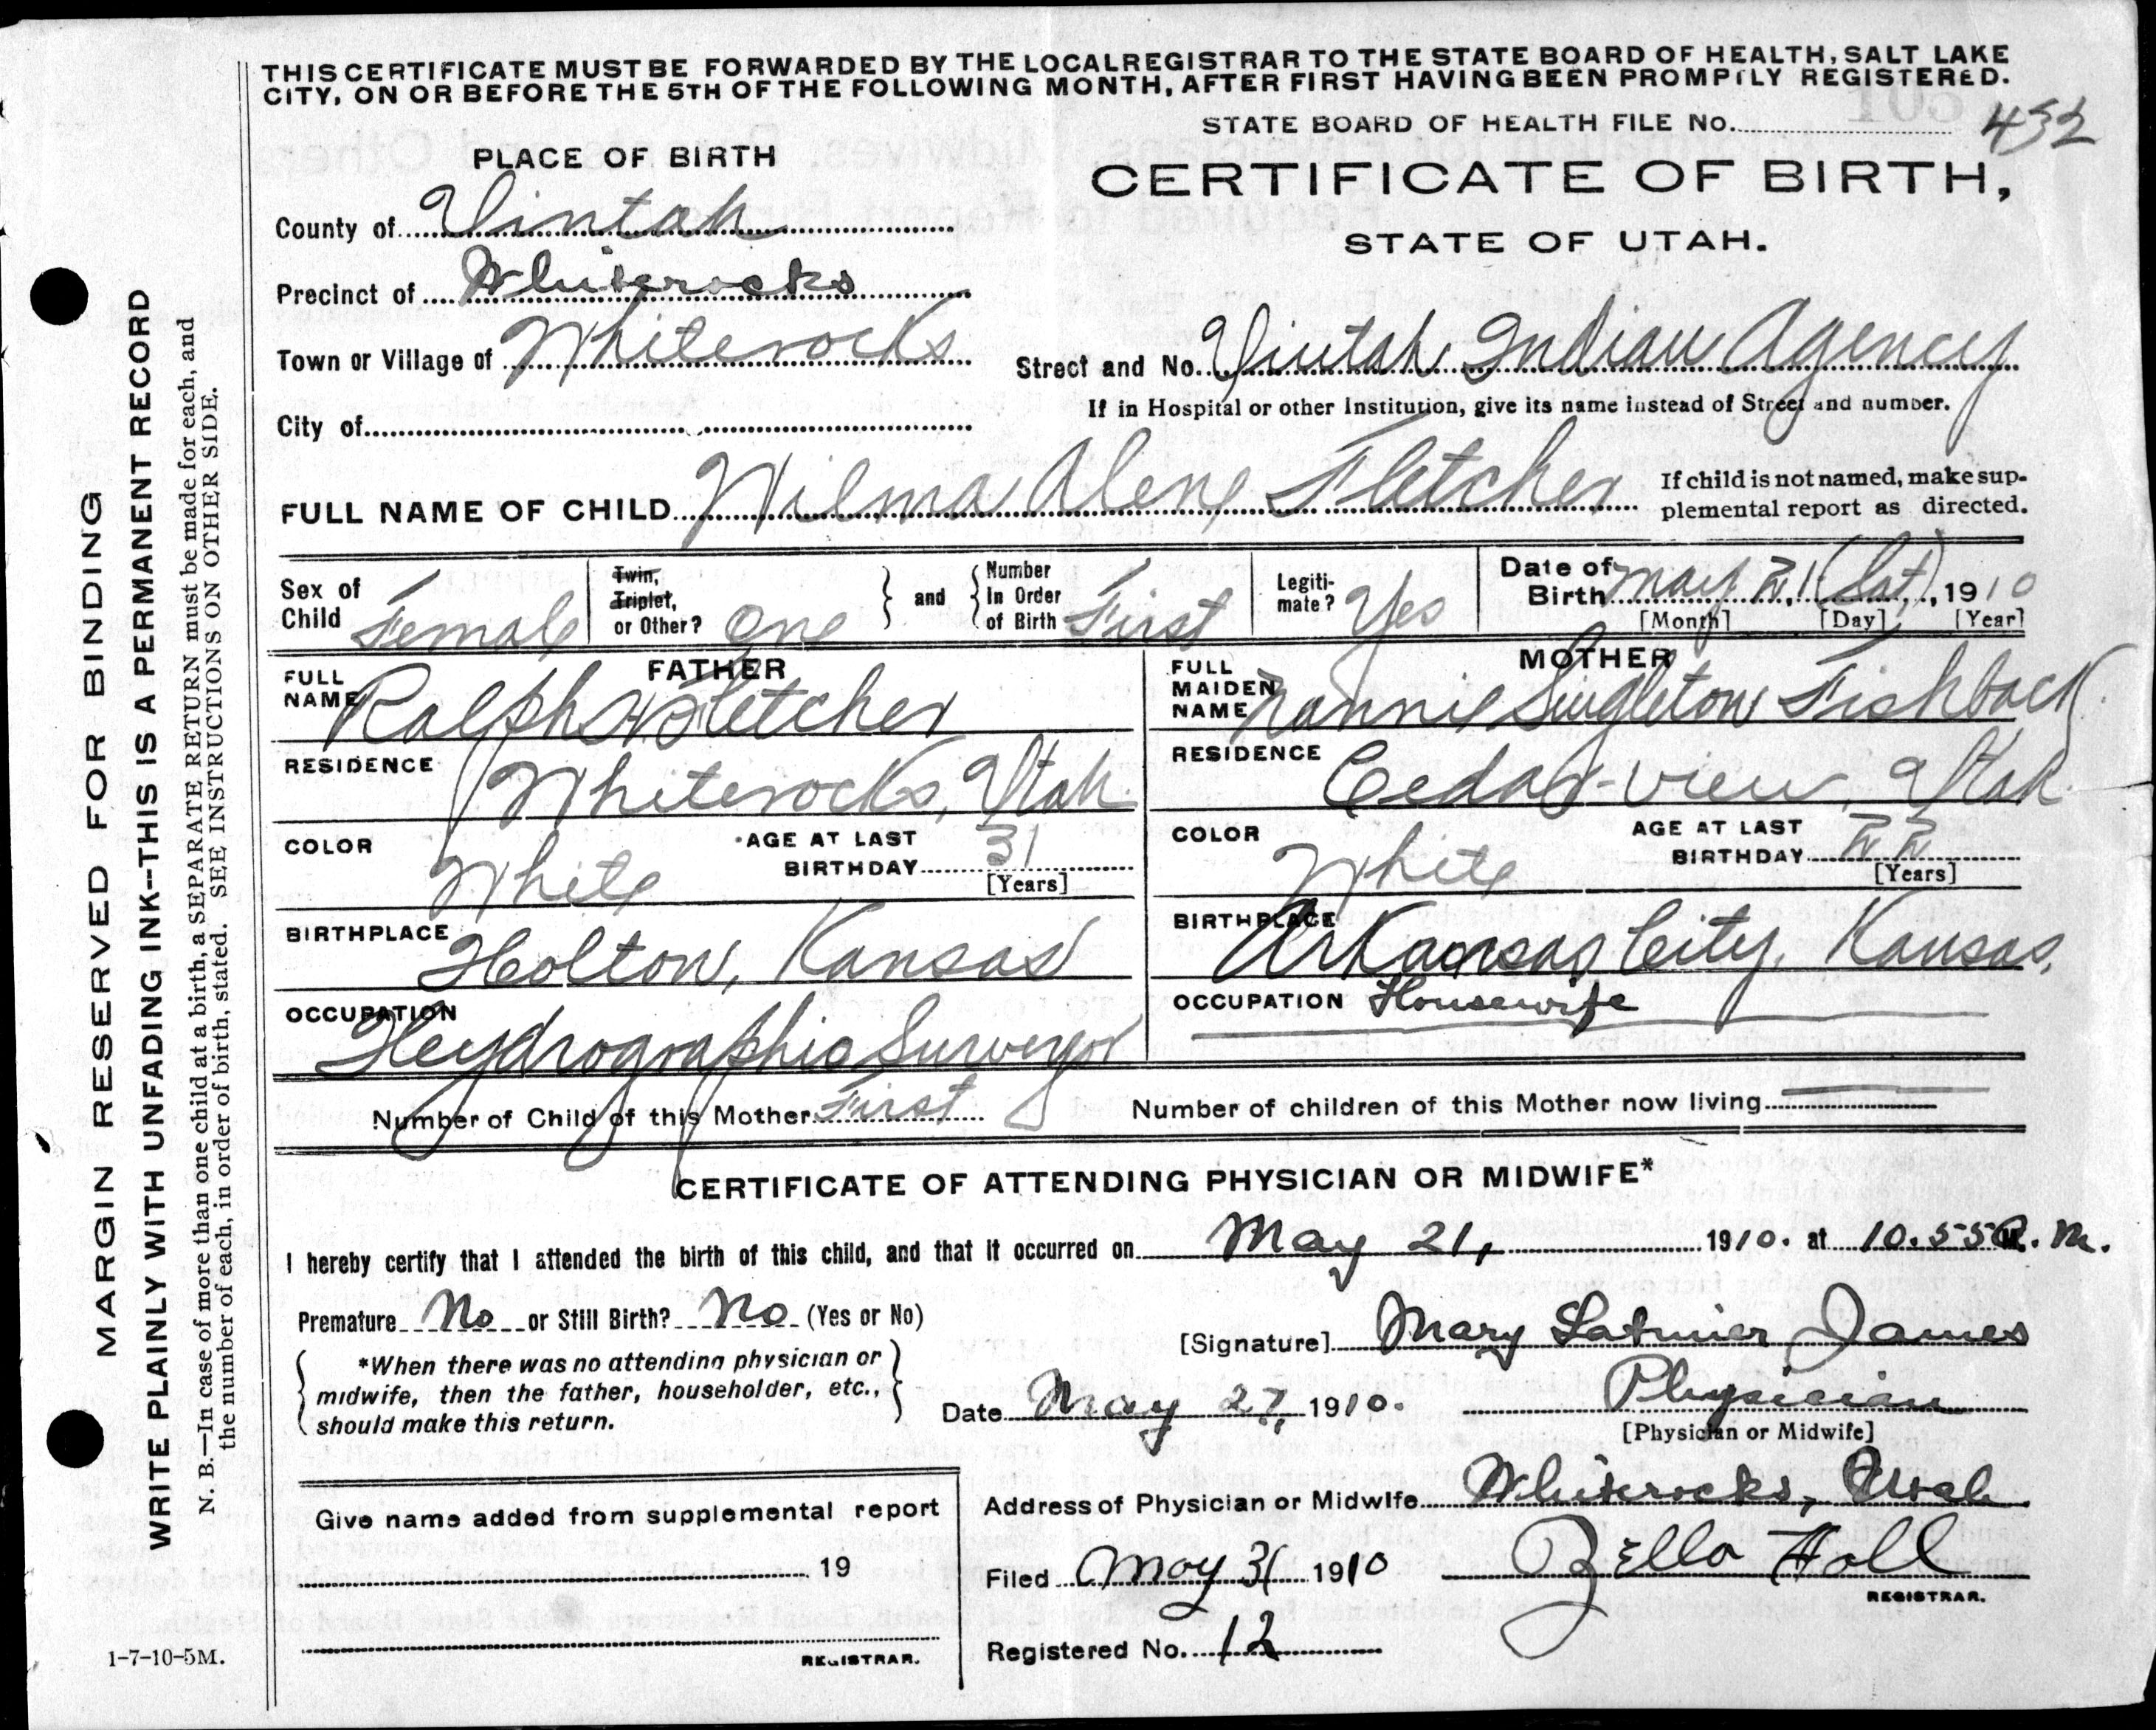 THIS CERTIFICATE MUST BE FORWARDED BY THE LOCAL REGISTRAR TO THE STATE BOARD OF HEALTH, SALT LAKE
CITY, ON OR BEFORE THE 5TH OF THE FOLLOWING MONTH, AFTER FIRST HAVING BEEN PROMPTLY REGISTERED.
STATE BOARD OF HEALTH FILE No. 432
PLACE OF BIRTH
CERTIFICATE OF BIRTH,
STATE OF UTAH.
County of Uintah
Precinct of Whiterocks
Town or Village of Whiterocks
Street and No. Uintah Indian Agency
If in Hospital or other Institution, give its name instead of Street and number.
City of
FULL NAME OF CHILD Wilma Alene Fletcher
If child is not named, make sup-
plemental report as directed.
Sex of Child Female
Twin, Triplet, or Other? One
and
Number In Order of Birth First
Legiti-mate? Yes
Date of Birth May 21 (Sat), 1910
[Month] [Day] [Year]
FATHER
FULL NAME Ralph H Fletcher
RESIDENCE Whiterocks, Utah
COLOR White
AGE AT LAST BIRTHDAY 31
[Years]
BIRTHPLACE Holton, Kansas
OCCUPATION Heydrographic Surveyor
MOTHER
FULL MAIDEN NAME Nannie Singleton Fishback
RESIDENCE Cedar-view, Utah
COLOR White
AGE AT LAST BIRTHDAY 22
[Years]
BIRTHPLACE Arkansas City, Kansas,
OCCUPATION Housewife
Number of Child of this Mother First
Number of children of this Mother now living
CERTIFICATE OF ATTENDING PHYSICIAN OR MIDWIFE*
I hereby certify that I attended the birth of this child, and that it occurred on May 21, 1910. at 10.55 M.
Premature No or Still Birth? No (Yes or No)
[Signature] Mary Latimer James
*When there was no attending physician or
midwife, then the father, householder, etc.,
should make this return.
Date May 27, 1910.
Physician
[Physician or Midwife]
Address of Physician or Midwife Whiterocks, Utah
Give name added from supplemental report
19
REGISTRAR.
Filed May 31 1910
Zella Hall
REGISTRAR.
Registered No. 12
1-7-10-5M.
MARGIN RESERVED FOR BINDING
WRITE PLAINLY WITH UNFADING INK--THIS IS A PERMANENT RECORD
N. B.—In case of more than one child at a birth, a SEPARATE RETURN must be made for each, and
the number of each, in order of birth, stated. SEE INSTRUCTIONS ON OTHER SIDE.